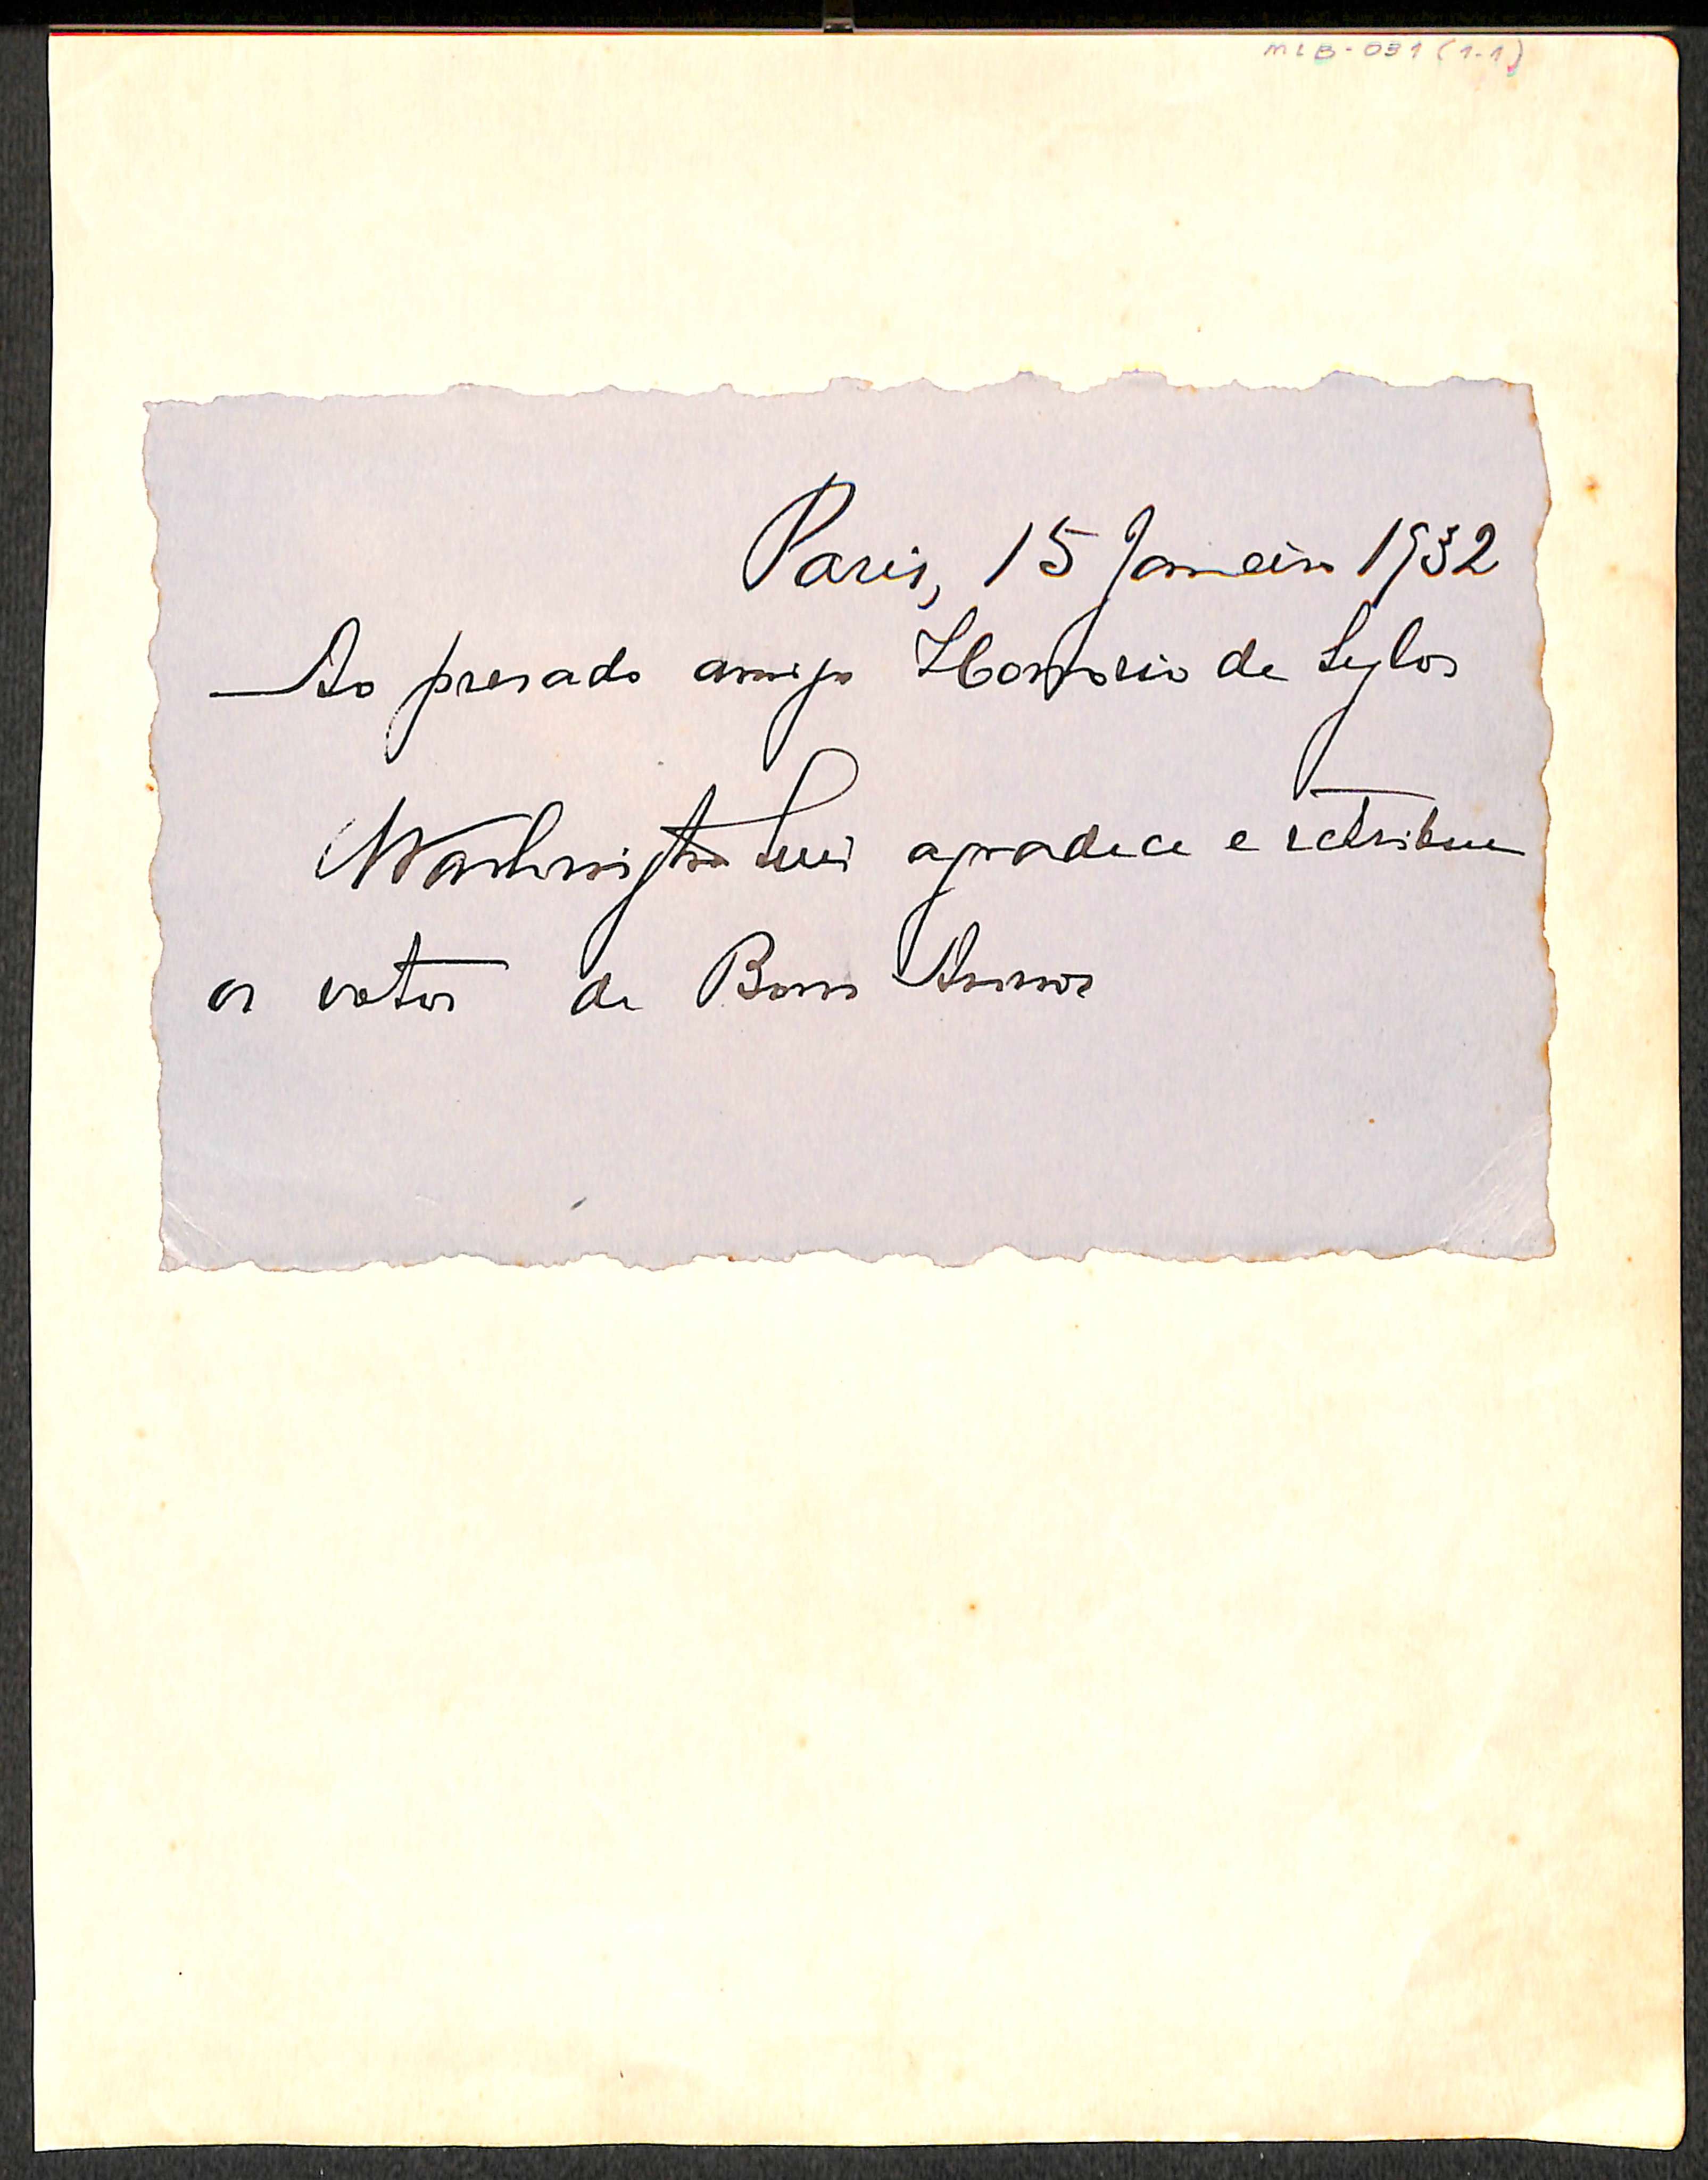 MLB-031 (1-1)
Paris, 15 Janeiro 1932
Ao presado amigo Honorio de Sylos
Washington Luis agradece e retribue
os votos de Bons Annos